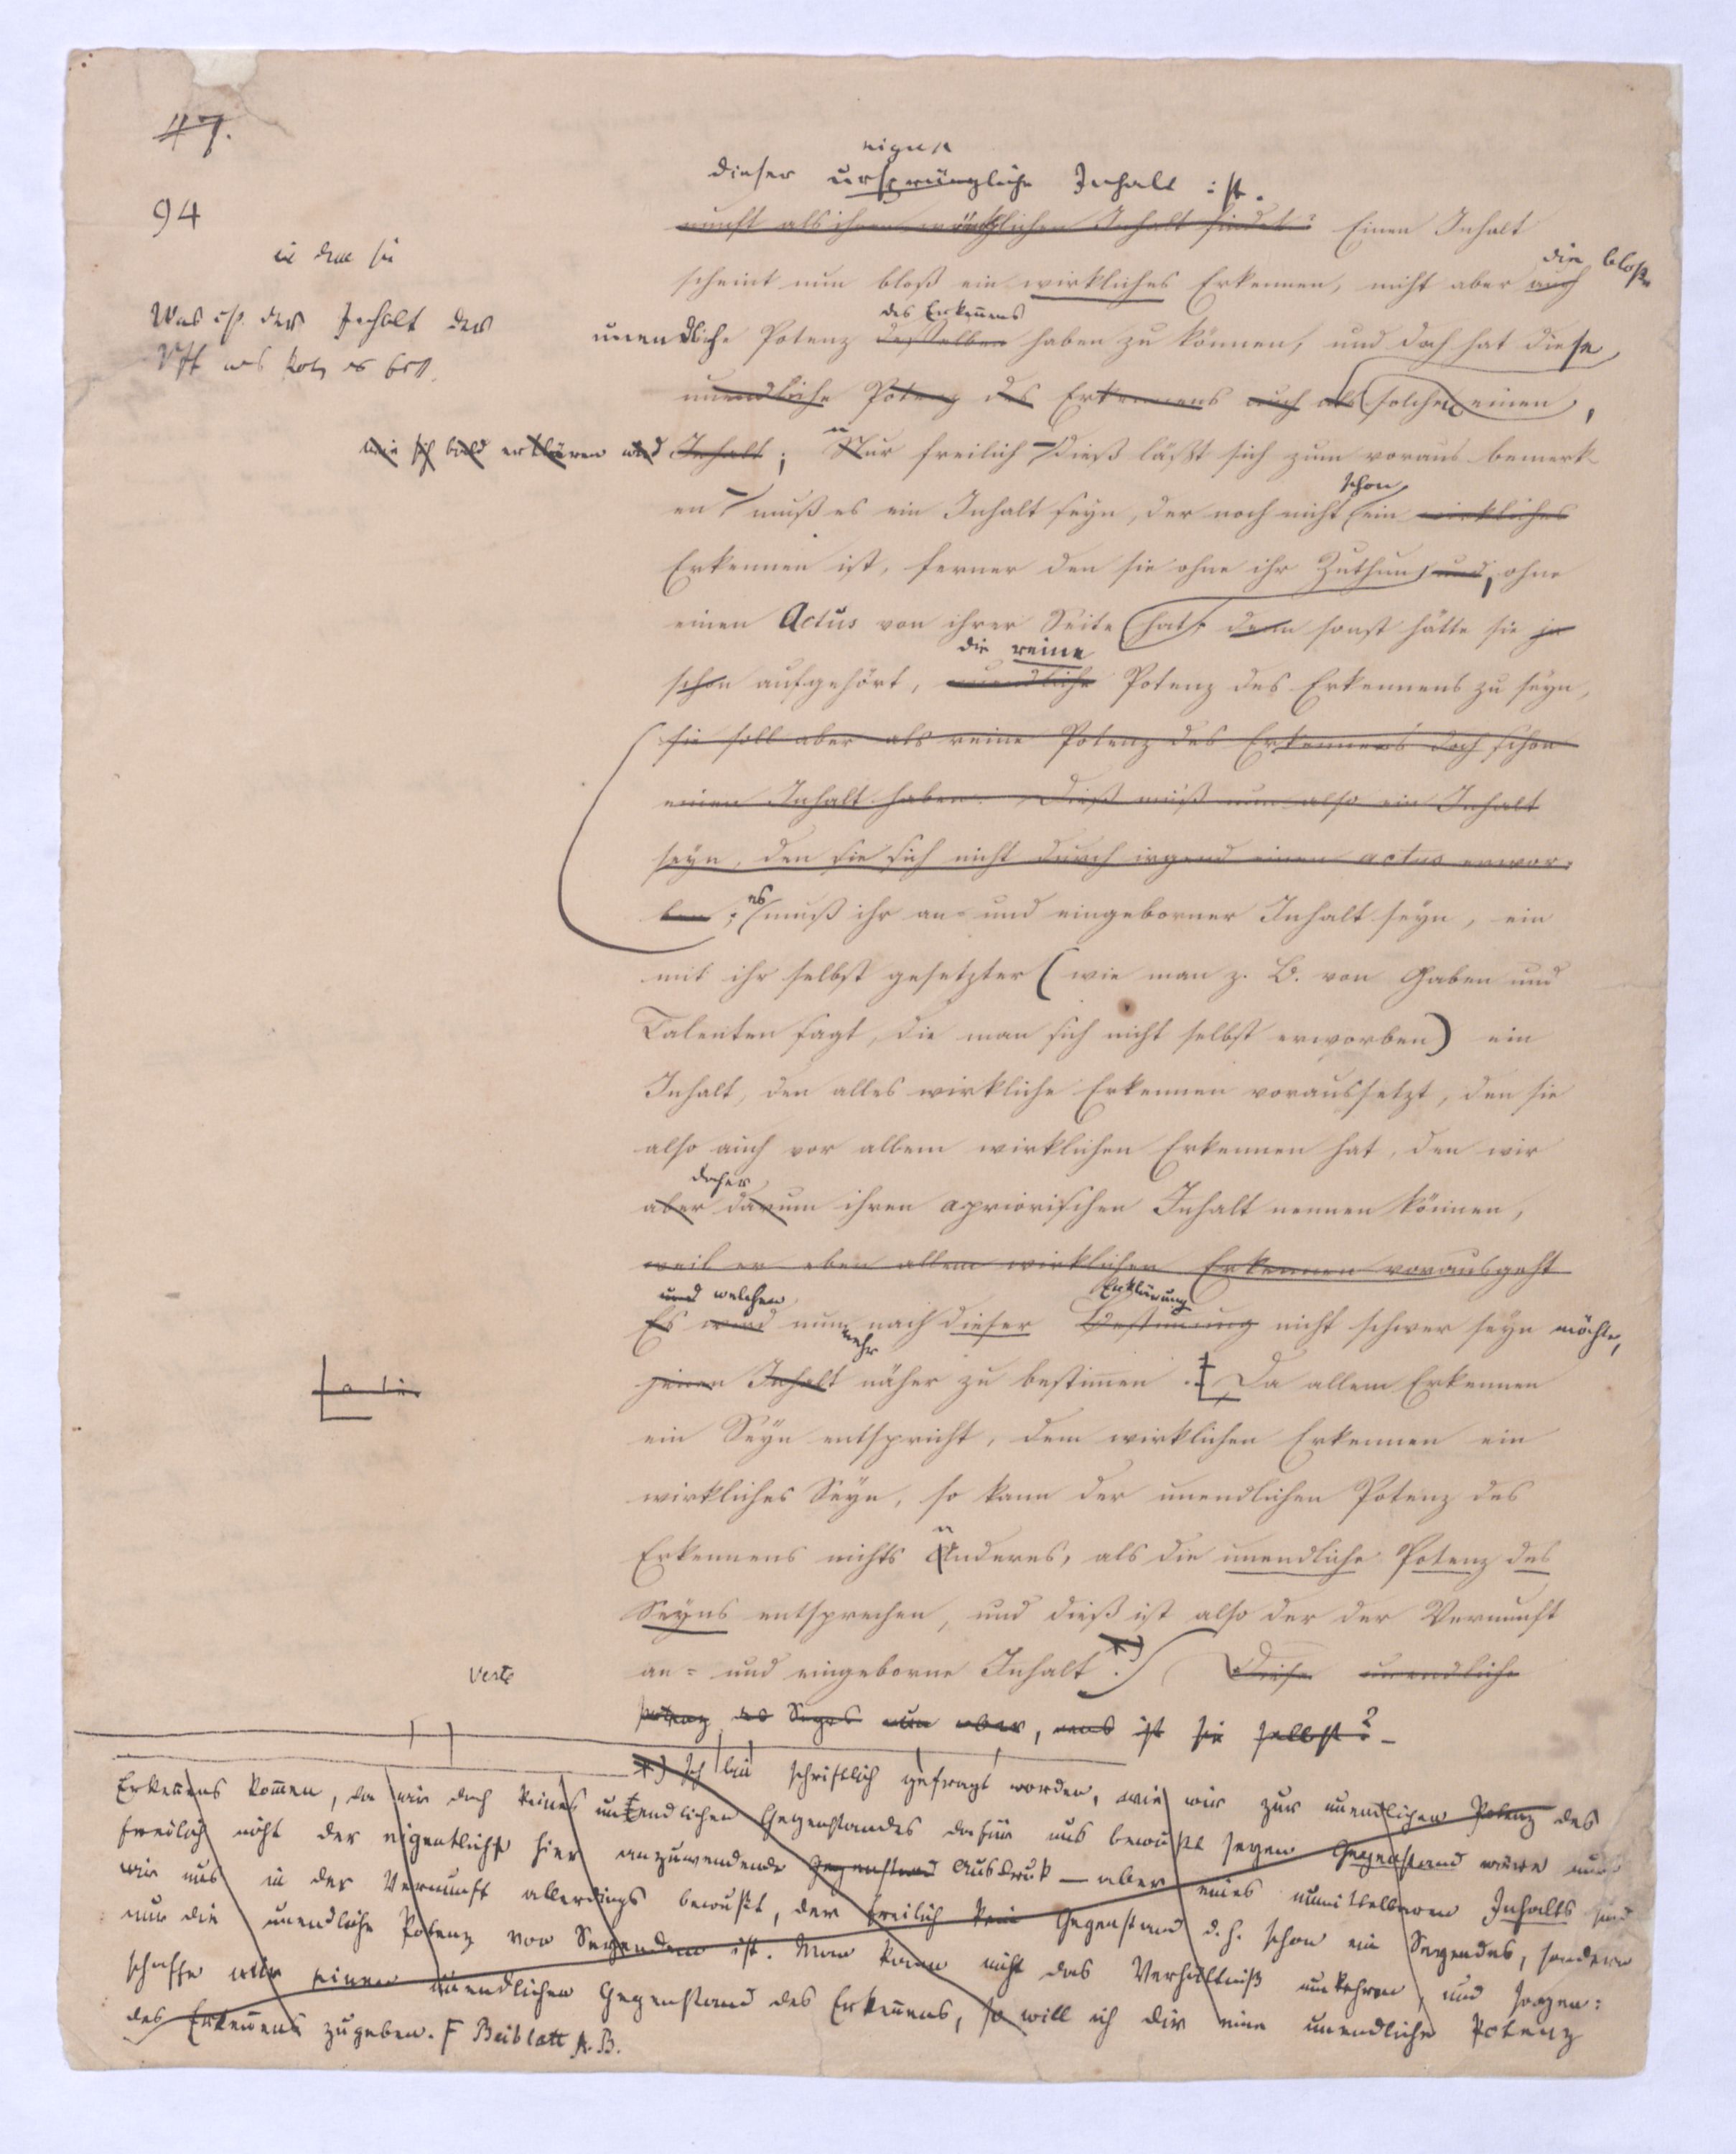 47.
94
in dem sie
Was ist der Inhalt der
eigene
dieser ursprüngliche Inhalt ist.
nunft als ihren ursprünglichen Inhalt findet? Einen Inhalt
die bloße
scheint nun bloß ein wirkliches Erkennen, nicht aber auch
des Erkennens
unendliche Potenz desselben haben zu können, und doch hat diese
unendliche Potenz des Erkennens auch als solche einen,
wie sich bald erklären wird Inhalt; Nur freilich – dieß läßt sich zum voraus bemerk-
schon
en – muß es ein Inhalt seyn, der noch nicht ein wirkliches
Erkennen ist, ferner den sie ohne ihr Zuthun, und, ohne
einen Actus von ihrer Seite hat; denn sonst hätte sie ja
die reine
schon aufgehört, unendliche Potenz des Erkennens zu seyn,
sie soll aber als reine Potenz des Erkennens doch schon
einen Inhalt haben. Dieß muß nun also ein Inhalt
seyn, den sie sich nicht durch irgend einen actus erwor-
es
ben; muß ihr an- und eingeborner Inhalt seyn, ein
mit ihr selbst gesetzter (wie man z. B. von Gaben und
Talenten sagt, die man sich nicht selbst erworben) ein
Inhalt, den alles wirkliche Erkennen voraussetzt, den sie
also auch vor allem wirklichen Erkennen hat, den wir
daher
aber darum ihren apriorischen Inhalt nennen können,
weil er eben allem wirklichen Erkennen vorausgeht
und welchen Erklärung
Es wird nun nach dieser Bestimmung nicht schwer seyn möchte,
mehr
jenen Inhalt näher zu bestimmen. Da allem Erkennen
ein Seyn entspricht, dem wirklichen Erkennen ein
wirkliches Seyn, so kann der unendlichen Potenz des
Erkennens nichts Anderes, als die unendliche Potenz des
Seyns entsprechen, und dieß ist also der der Vernunft
an- und eingeborne Inhalt.*) Diese unendliche
verte
Potenz des Seyns nun aber, was ist sie selbst? –
*) Ich bin schriftlich gefragt worden, wie wir zur unendlichen Potenz des
Erkennens kommen, da wir doch keines unendlichen Gegenstandes dafür uns bewußt seyen Gegenstand wäre nun
freilich nicht der eigentlichst hier anzuwendende Gegenstand Ausdruck – aber eines unmittelbaren Inhalts sind
wir uns in der Vernunft allerdings bewußt, der freilich kein Gegenstand d. h. schon ein Seyendes, sondern
nur die unendliche Potenz von Seyendem ist. Man kann nicht das Verhältniß umkehren, und sagen:
schaffe mir einen unendlichen Gegenstand des Erkennens, so will ich dir eine unendliche Potenz
des Erkennens zugeben. F Beiblatt A. B.